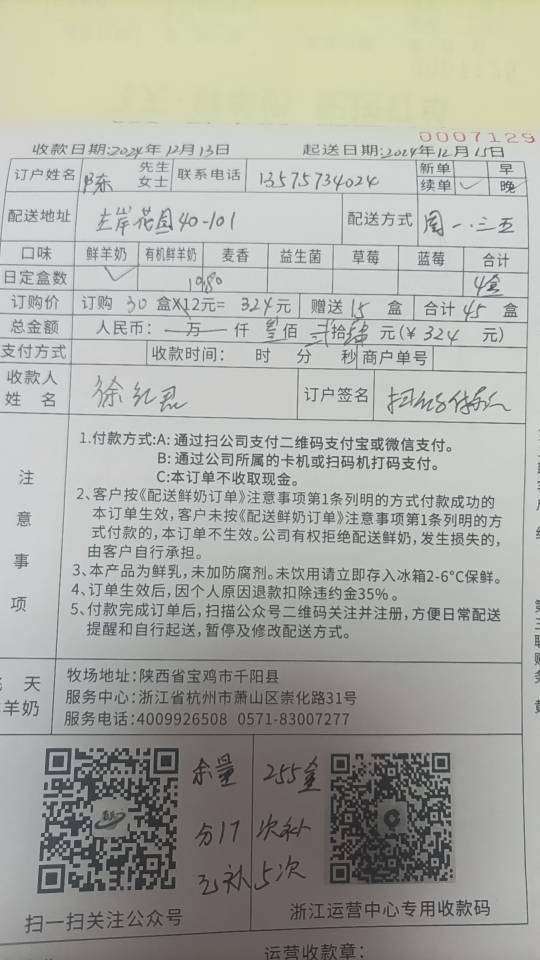 0007129
收款日期:2024年12月13日 起送日期:2024年12月15日
订户姓名 陈 先生 女士 联系电话 13575734024 新单 早
续单 ✓ 晚
配送地址 左岸花园40-101 配送方式 周一.三五
口味 鲜羊奶 有机鲜羊奶 麦香 益生菌 草莓 蓝莓 合计
日定盒数 ✓ 10.80 4盒
订购价 订购 30 盒X12元= 324元 赠送 15 盒 合计 45 盒
总金额 人民币: 一万 仟 叁佰 贰拾肆 元(¥ 324 元)
支付方式 收款时间: 时 分 秒 商户单号
收款人
姓 名 订户签名
注意事项
1.付款方式:A:通过扫公司支付二维码支付宝或微信支付。
B:通过公司所属的卡机或扫码机打码支付。
C:本订单不收取现金。
2、客户按《配送鲜奶订单》注意事项第1条列明的方式付款成功的
本订单生效,客户未按《配送鲜奶订单》注意事项第1条列明的方
式付款的,本订单不生效。公司有权拒绝配送鲜奶,发生损失的,
由客户自行承担。
3、本产品为鲜乳,未加防腐剂。未饮用请立即存入冰箱2-6°C保鲜。
4、订单生效后,因个人原因退款扣除违约金35%。
5、付款完成订单后,扫描公众号二维码关注并注册,方便日常配送
提醒和自行起送,暂停及修改配送方式。
天
羊奶
牧场地址:陕西省宝鸡市千阳县
服务中心:浙江省杭州市萧山区崇化路31号
服务电话:4009926508 0571-83007277
余量 255盒
分17次补
已补5次
扫一扫关注公众号 浙江运营中心专用收款码
运营收款章: